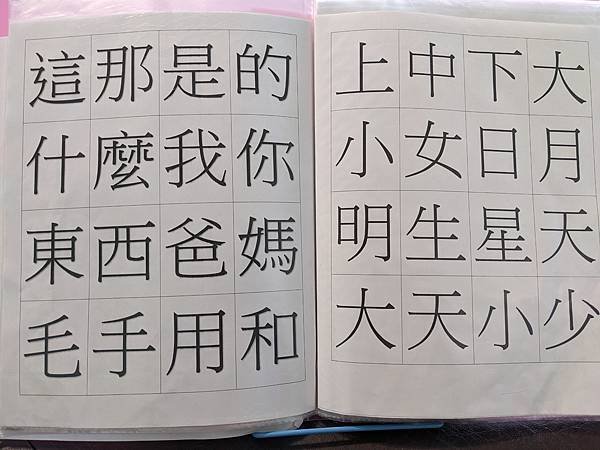 這那是的
什麼我你
東西爸媽
毛手用和
上中下大
小女日月
明生星天
大天小少